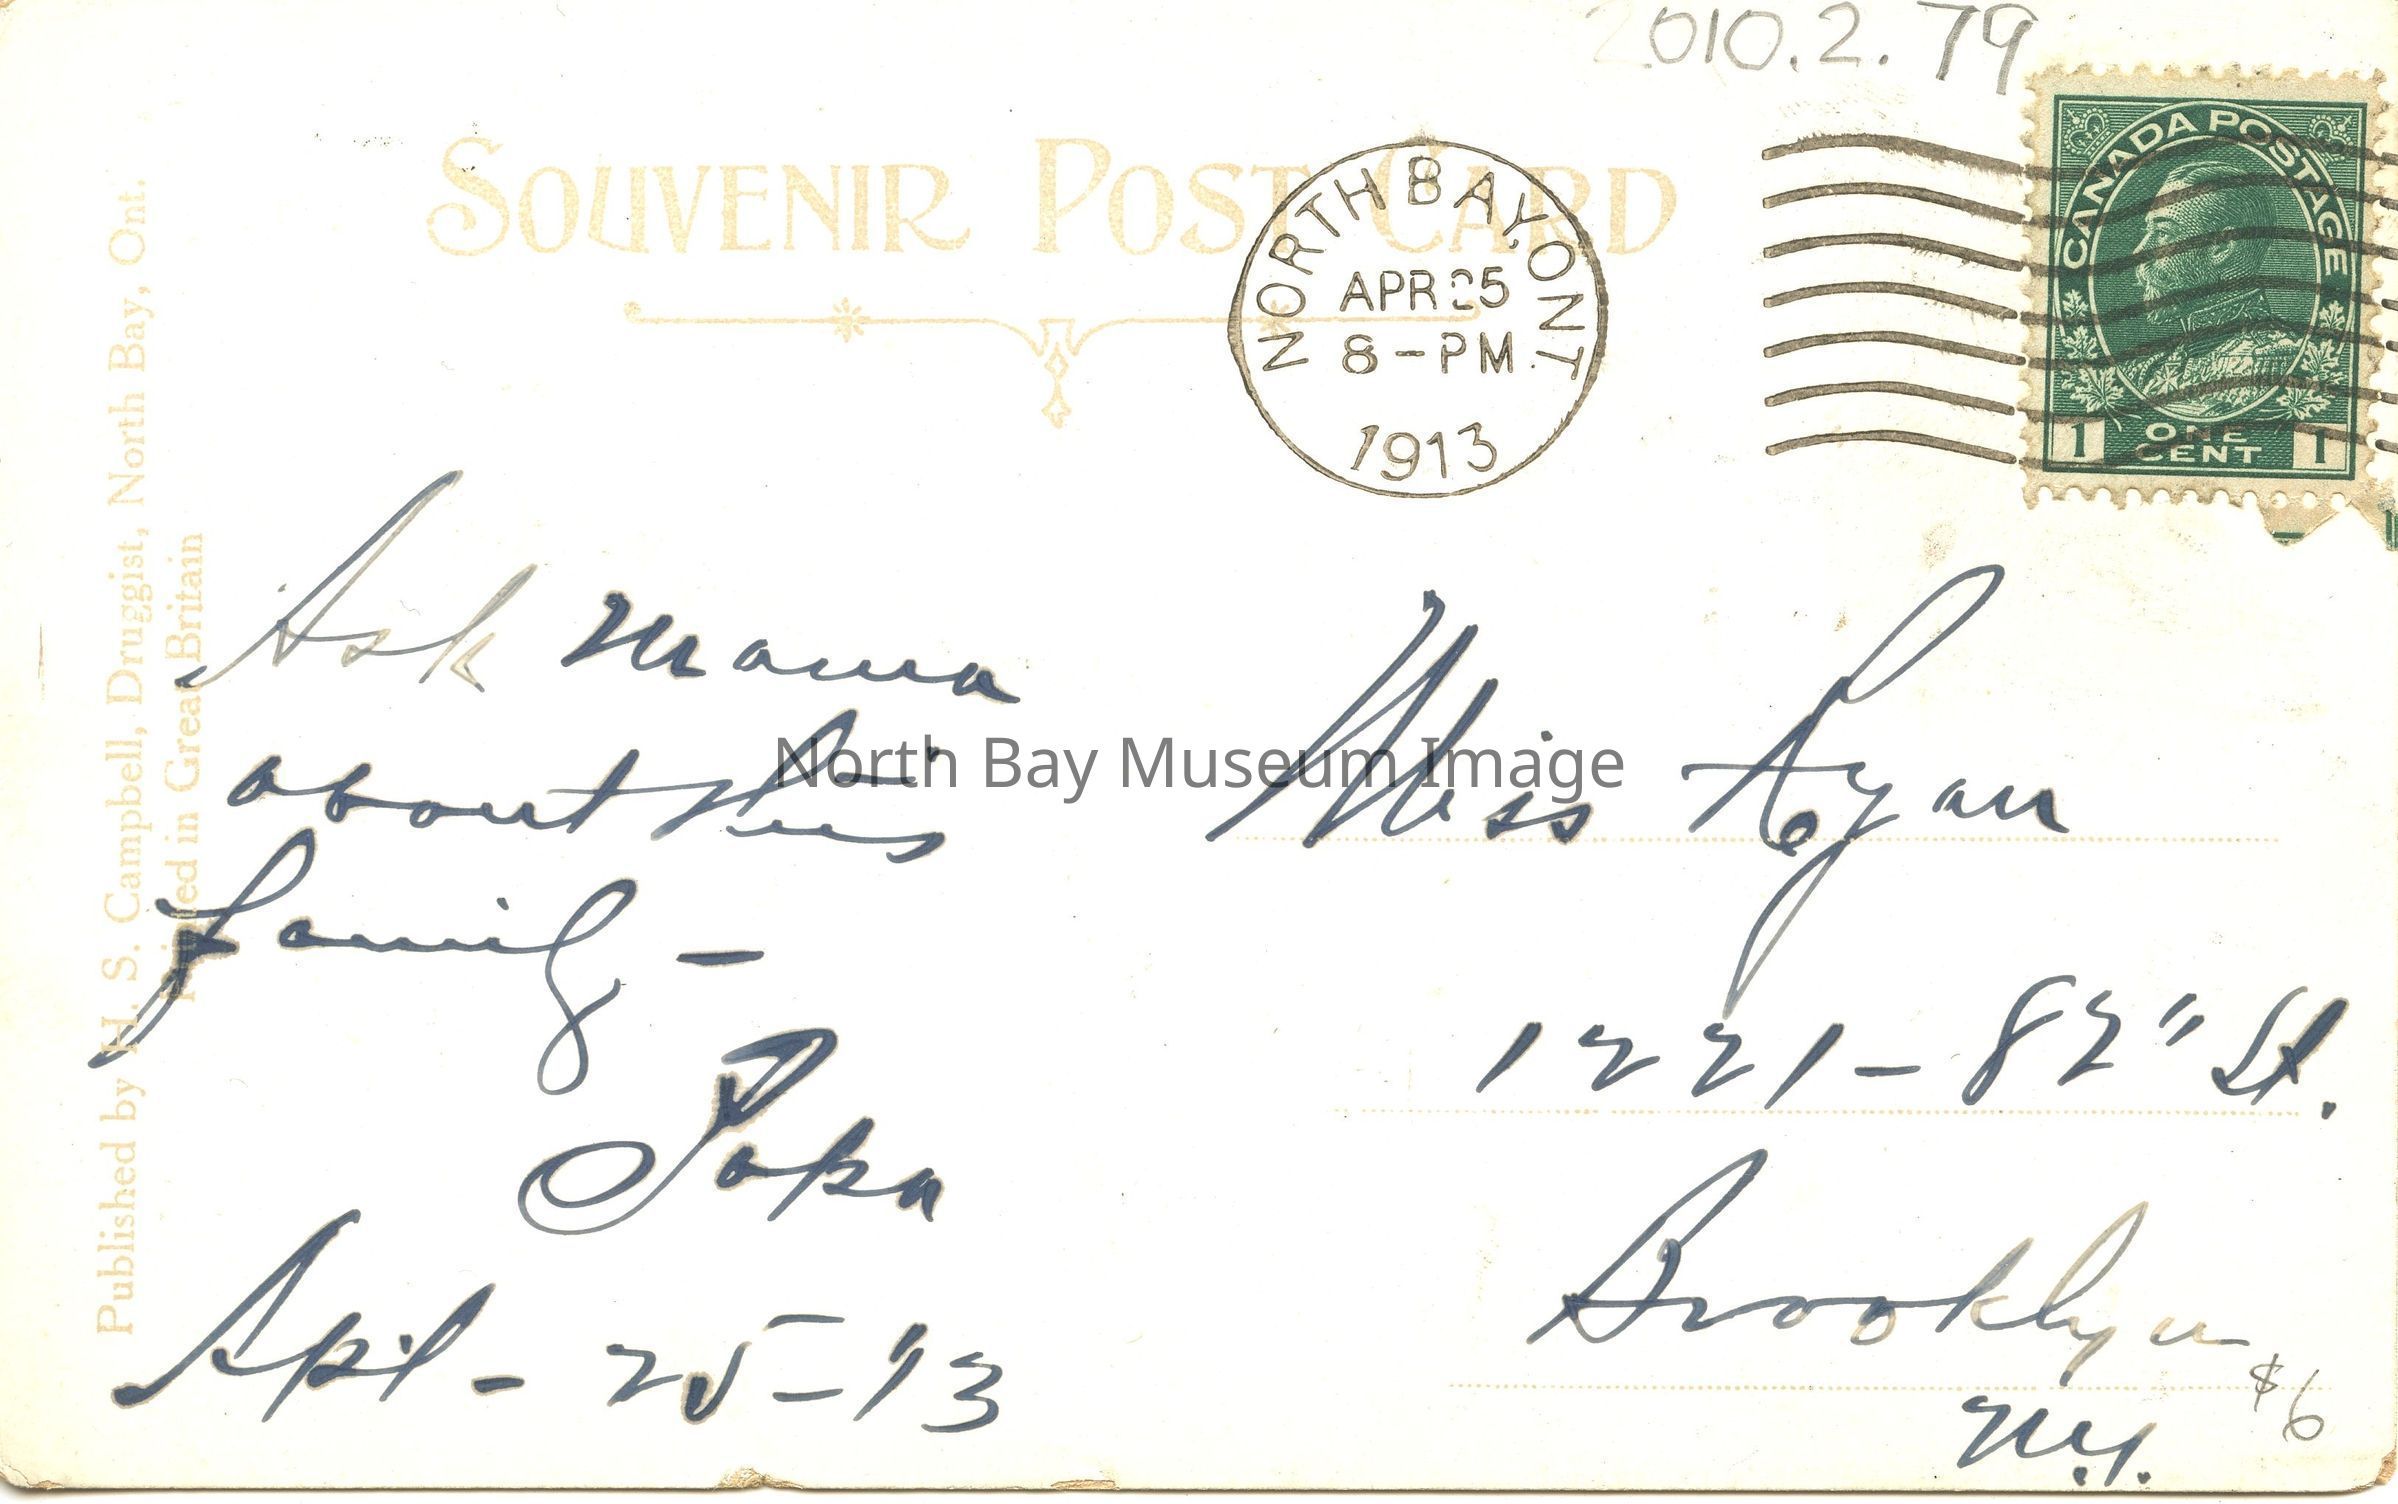 2010.2.79
SOUVENIR POST CARD
NORTH BAY, ONT.
APR 25
8-PM
1913
CANADA POSTAGE
1 ONE CENT 1
Published by H. S. Campbell, Druggist, North Bay, Ont.
Printed in Great Britain
Ask Mama
about this
family -
Papa
Apl - 25 - '13
Miss Ryan
1221 - 82" St.
Brooklyn
N.Y.
$6
North Bay Museum Image